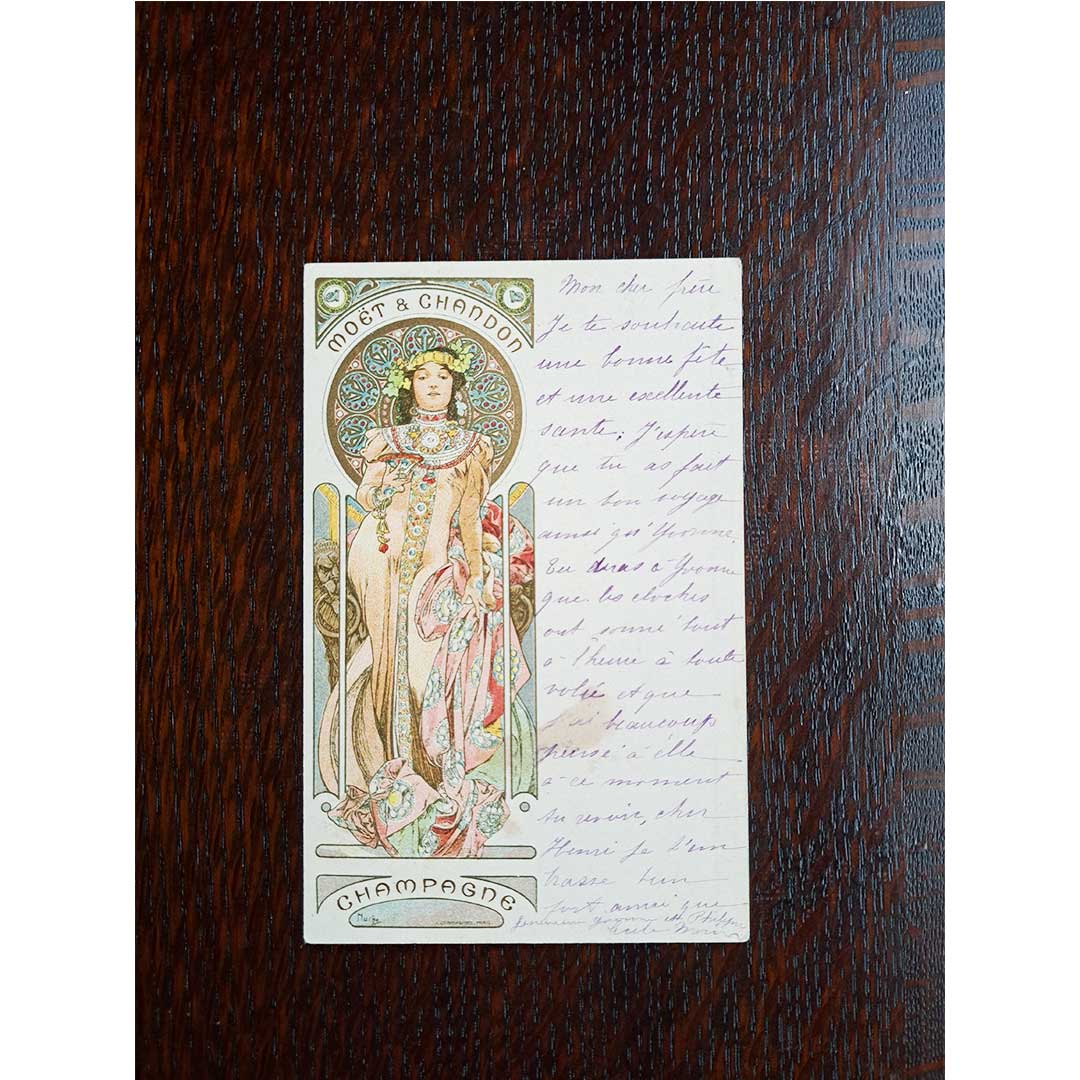 MOËT & CHANDON
CHAMPAGNE
Mucha
Mon cher frère
Je te souhaite
une bonne fête
et une excellente
sante. J'espère
que tu as fait
un bon voyage
ainsi qu'Yvonne.
Tu diras à Yvonne
que les cloches
ont sonné tout
à l'heure à toute
volée et que
j'ai beaucoup
pensé à elle
à ce moment
Au revoir, cher
Henri je t'em
brasse bien
fort ainsi que
Yvonne et Philippe